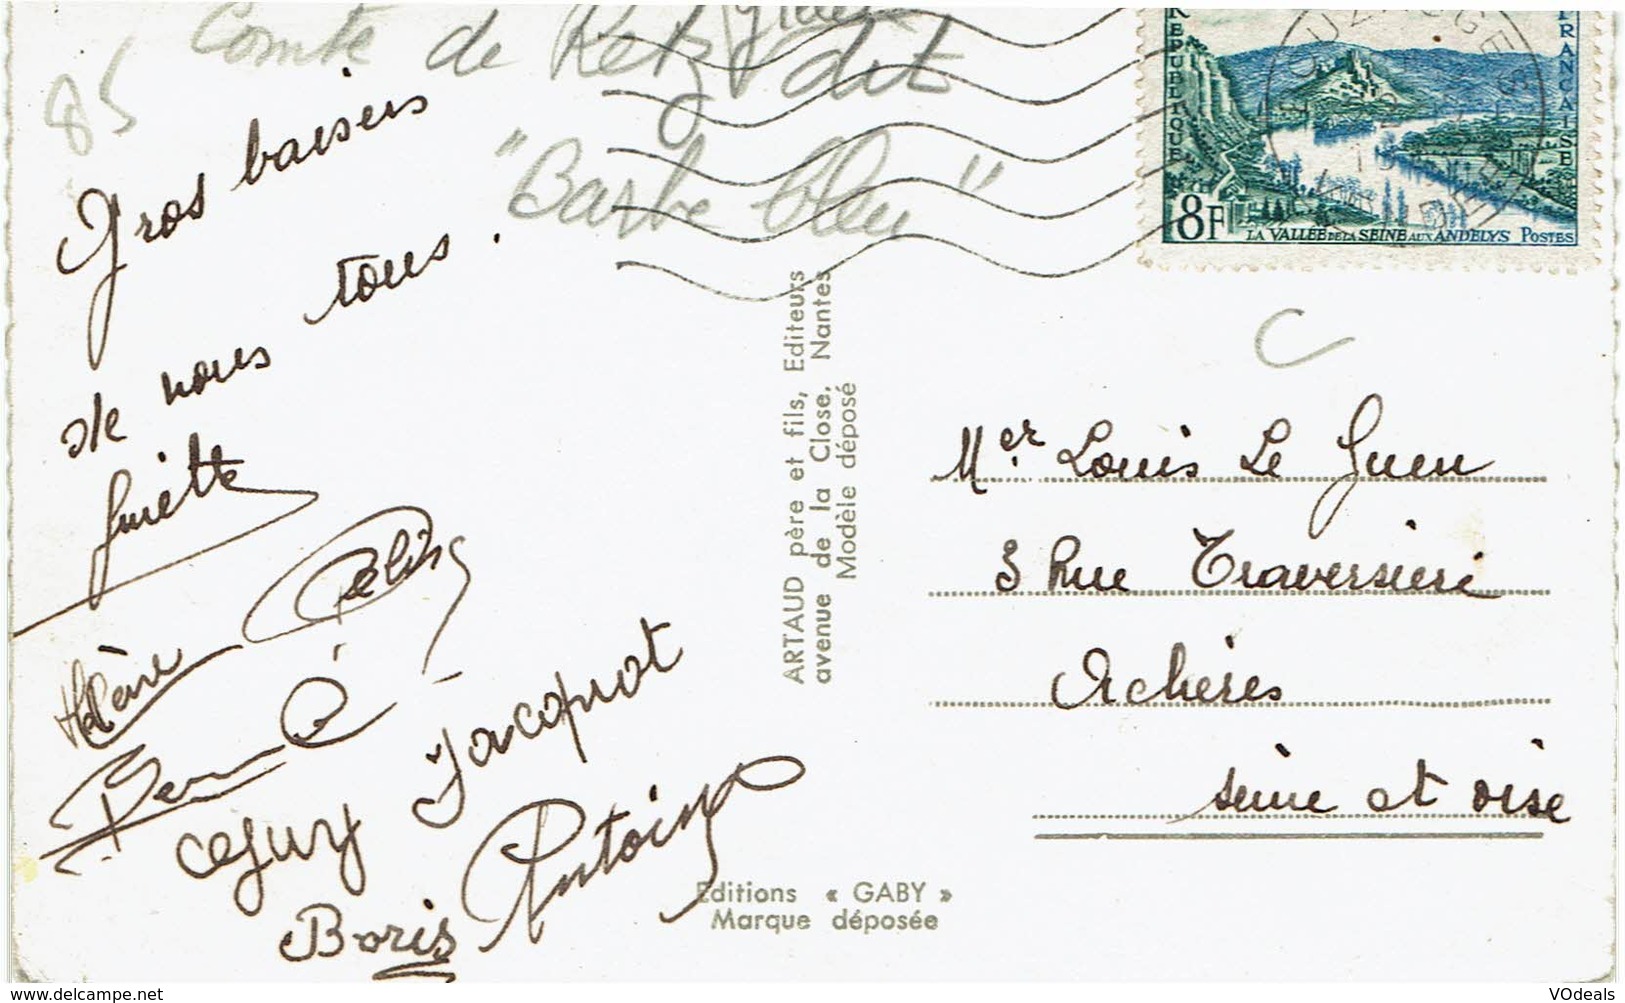 85
Comte de Retz dit
"Barbe bleu"
Gros baisers
de nous tous.
Guiette
Hélène
Guy Jacopnot
Boris Antoine
ARTAUD père et fils, Editeurs
avenue de la Close, Nantes
Modèle déposé
Editions « GABY »
Marque déposée
REPUBLIQUE
FRANCAISE
8F
LA VALLÉE DE LA SEINE AUX ANDELYS POSTES
C
Mer Louis Le Guen
3 Rue Traversiere
Achères
seine et oise
www.delcampe.net
VOdeals